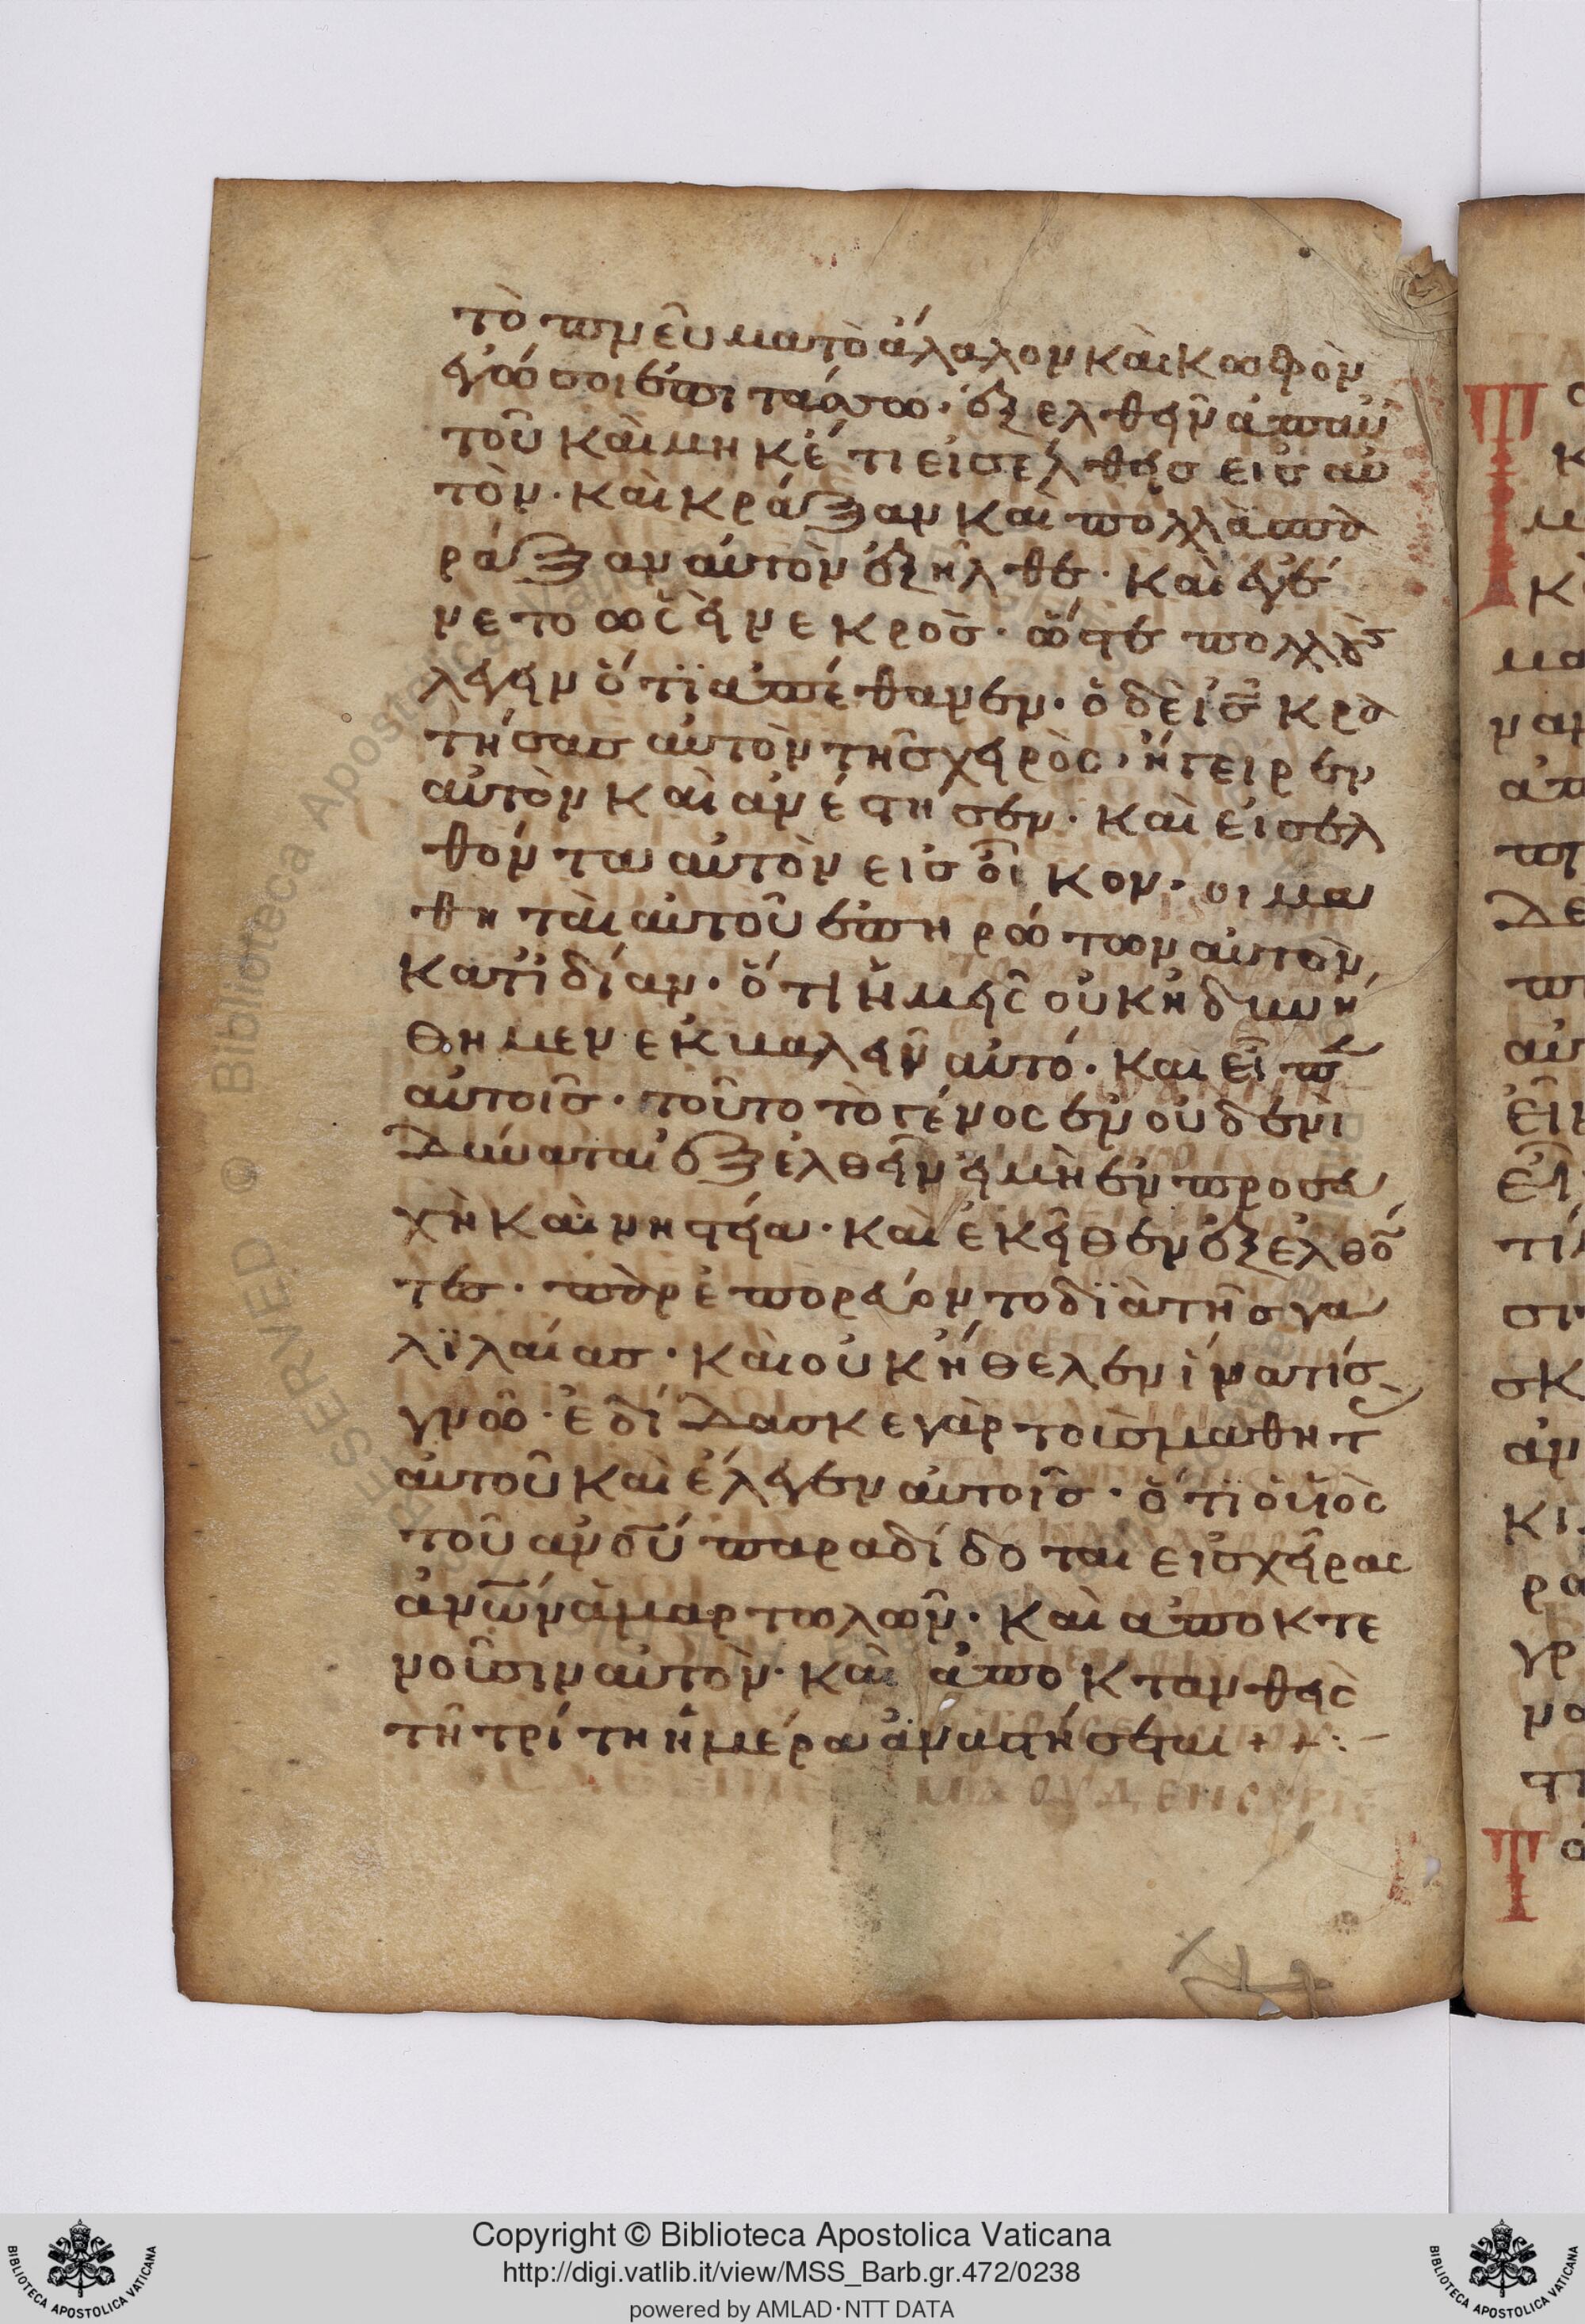 τὸ πνεῦμα τὸ ἄλαλον καὶ κωφὸν
ἐγώ σοι ἐπιτάσσω· ἔξελθε ἀπ αὐ
τοῦ καὶ μηκέτι εἰσέλθης εἰς αὐ
τὸν· καὶ κράξαν καὶ πολλὰ σπα
ράξαν αὐτὸν ἐξῆλθε· καὶ ἐγέ
νετο ὡσεὶ νεκρὸς· ὥστε πολλοὺς
λέγειν ὅτϊ ἀπέθανεν· ὁ δὲ ις κρα
τήσας αὐτὸν τῆς χειρὸς· ἤγειρεν
αὐτὸν καὶ ἀνέστησεν· καὶ εἰσελ
θόντα αὐτὸν εἰς οἶκον· οι μα
θηταὶ αὐτοῦ ἐπηρώτων αὐτὸν
κατϊδίαν· ὅτι ἡμεῖς οὐκ ἠδυνή
θημεν ἐκβαλεῖν αὐτό· καὶ εἶπεν
αὐτοῖς· τοῦτο τὸ γένος ἐν οὐδενὶ
δύναται ἐξελθεῖν εἰ μὴ ἐν προσευ
χῆ καὶ νηστεία· καὶ ἐκεῖθεν ἐξελθό
τες· παρεπορεύοντο διὰ τῆς γα
λϊλαίας· καὶ οὐκ ἤθελεν ἵνα τίς
γνῶ· ἐδίδασκε γὰρ τοὺς μαθητ
αὐτοῦ καὶ ἔλεγεν αὐτοῖς· ὅτϊ ὁ υἱὸς
τοῦ ανου παραδίδοται εἰς χεῖρας
ανων ἁμαρτωλῶν· καὶ ἀποκτε
νοῦσιν αὐτὸν· καὶ ἀποκτανθεὶς
τῆ τρίτη ἡμέρα ἀναστήσεται + +:-
Copyright © Biblioteca Apostolica Vaticana
http://digi.vatlib.it/view/MSS_Barb.gr.472/0238
powered by AMLAD·NTT DATA